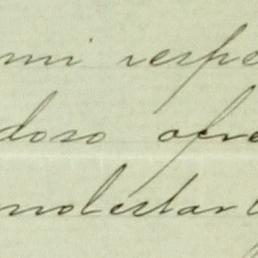 mi respe
doso ofre
molestar l